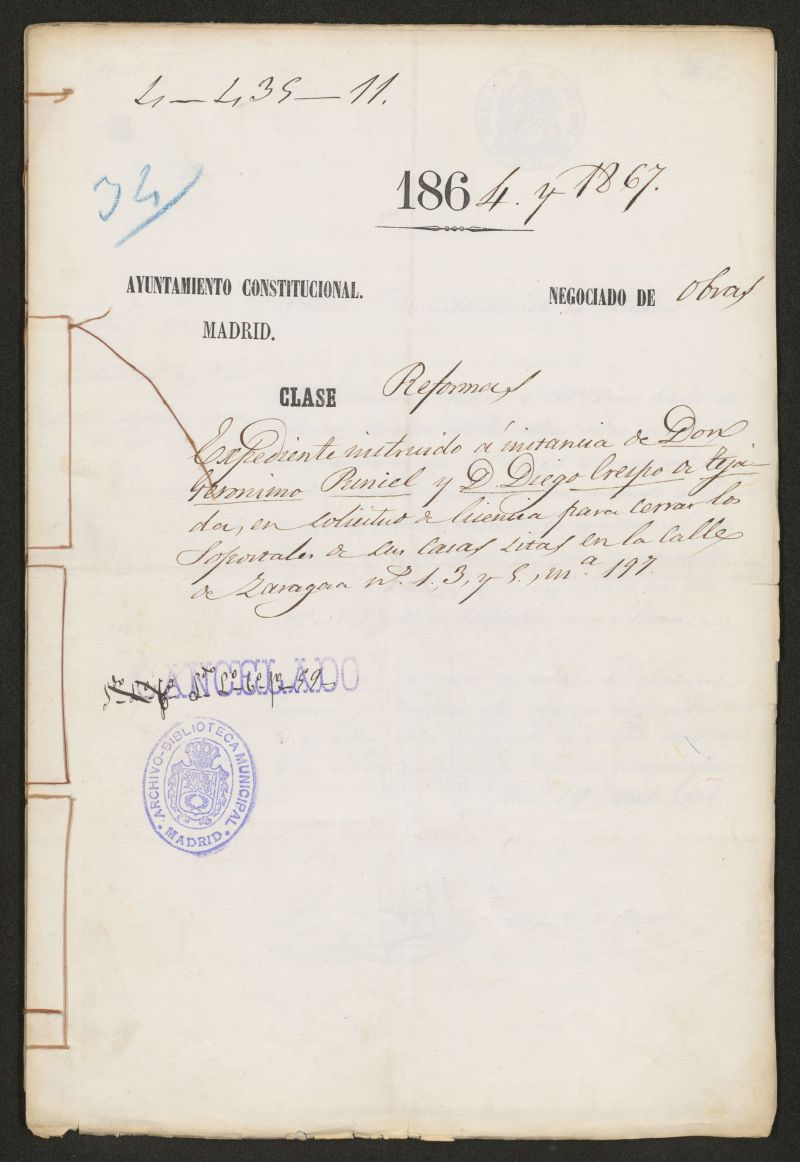 4-435-11.
34
1864. y 1867.
AYUNTAMIENTO CONSTITUCIONAL.
MADRID.
NEGOCIADO DE Obras
CLASE Reformas
Expediente instruido á instancia de Don
Geronimo Runiel y D. Diego Crespo de teja-
da, en solicitud de licencia para cerrar los
Soportales de sus casas sitas en la Calle
de Zaragoza nos. 1. 3, y 5., m.a 197.
CANCELADO
ARCHIVO-BIBLIOTECA MUNICIPAL
MADRID